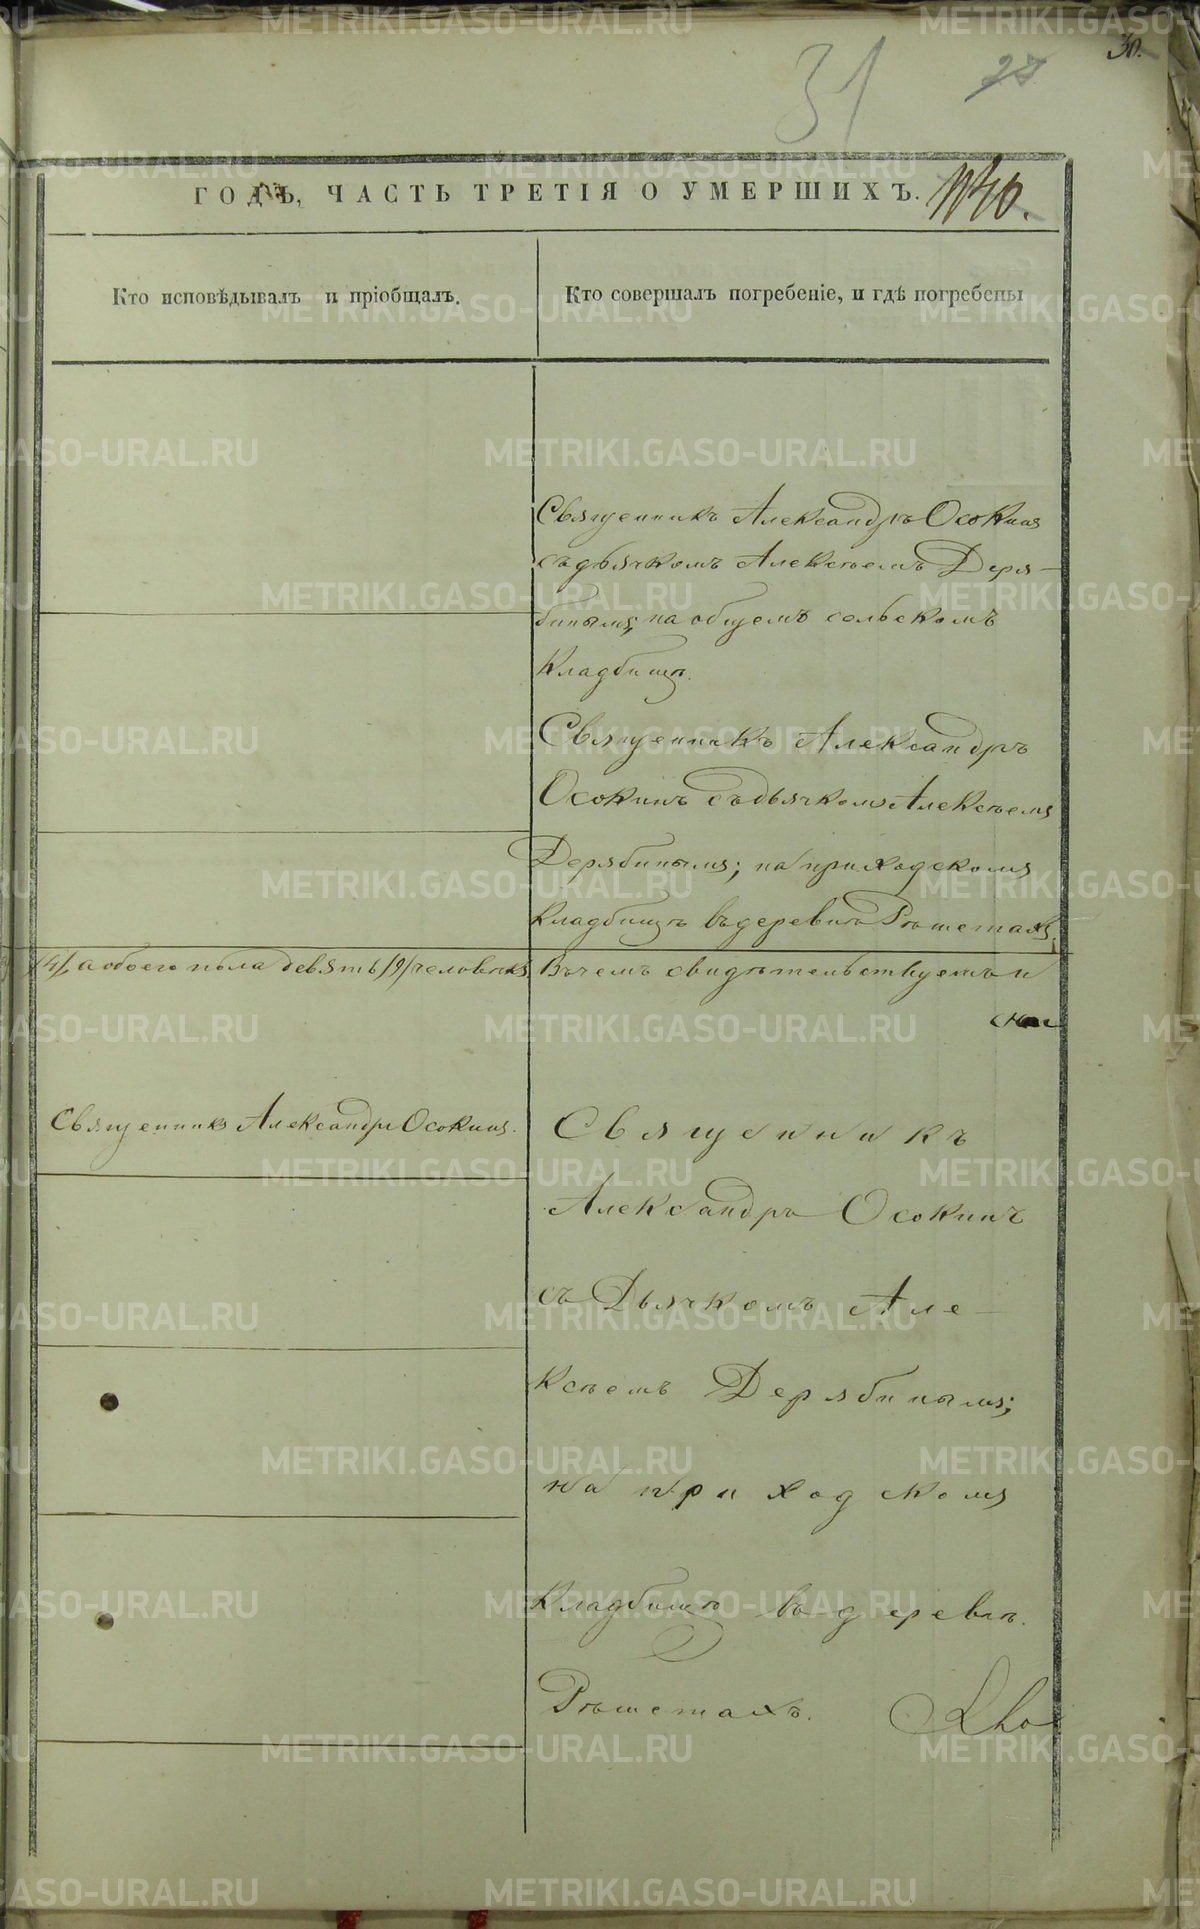 31
27
30.
ГОДЪ, ЧАСТЬ ТРЕТІЯ О УМЕРШИХЪ.
Кто исповѣдывалъ и пріобщалъ.
Кто совершалъ погребеніе, и гдѣ погребены
Священникъ Александръ Осокинъ
съ дьячкомъ Алексѣемъ Деря-
бинымъ; на общемъ сельскомъ
Кладбищѣ.
Священникъ Александръ
Осокинъ съ дьячкомъ Алексѣемъ
Дерябинымъ; на приходскомъ
Кладбищѣ въ деревнѣ Рѣшетахъ.
/4/, а обоего пола девять /9/ человѣкъ
Въ чемъ свидѣтельствуемъ и
Священникъ Александръ Осокинъ.
Священникъ
Александръ Осокинъ
съ Дьячкомъ Але-
ксѣемъ Дерябинымъ;
на приходскомъ
Кладбищѣ въ деревнѣ.
Рѣшетахъ.
METRIKI.GASO-URAL.RU